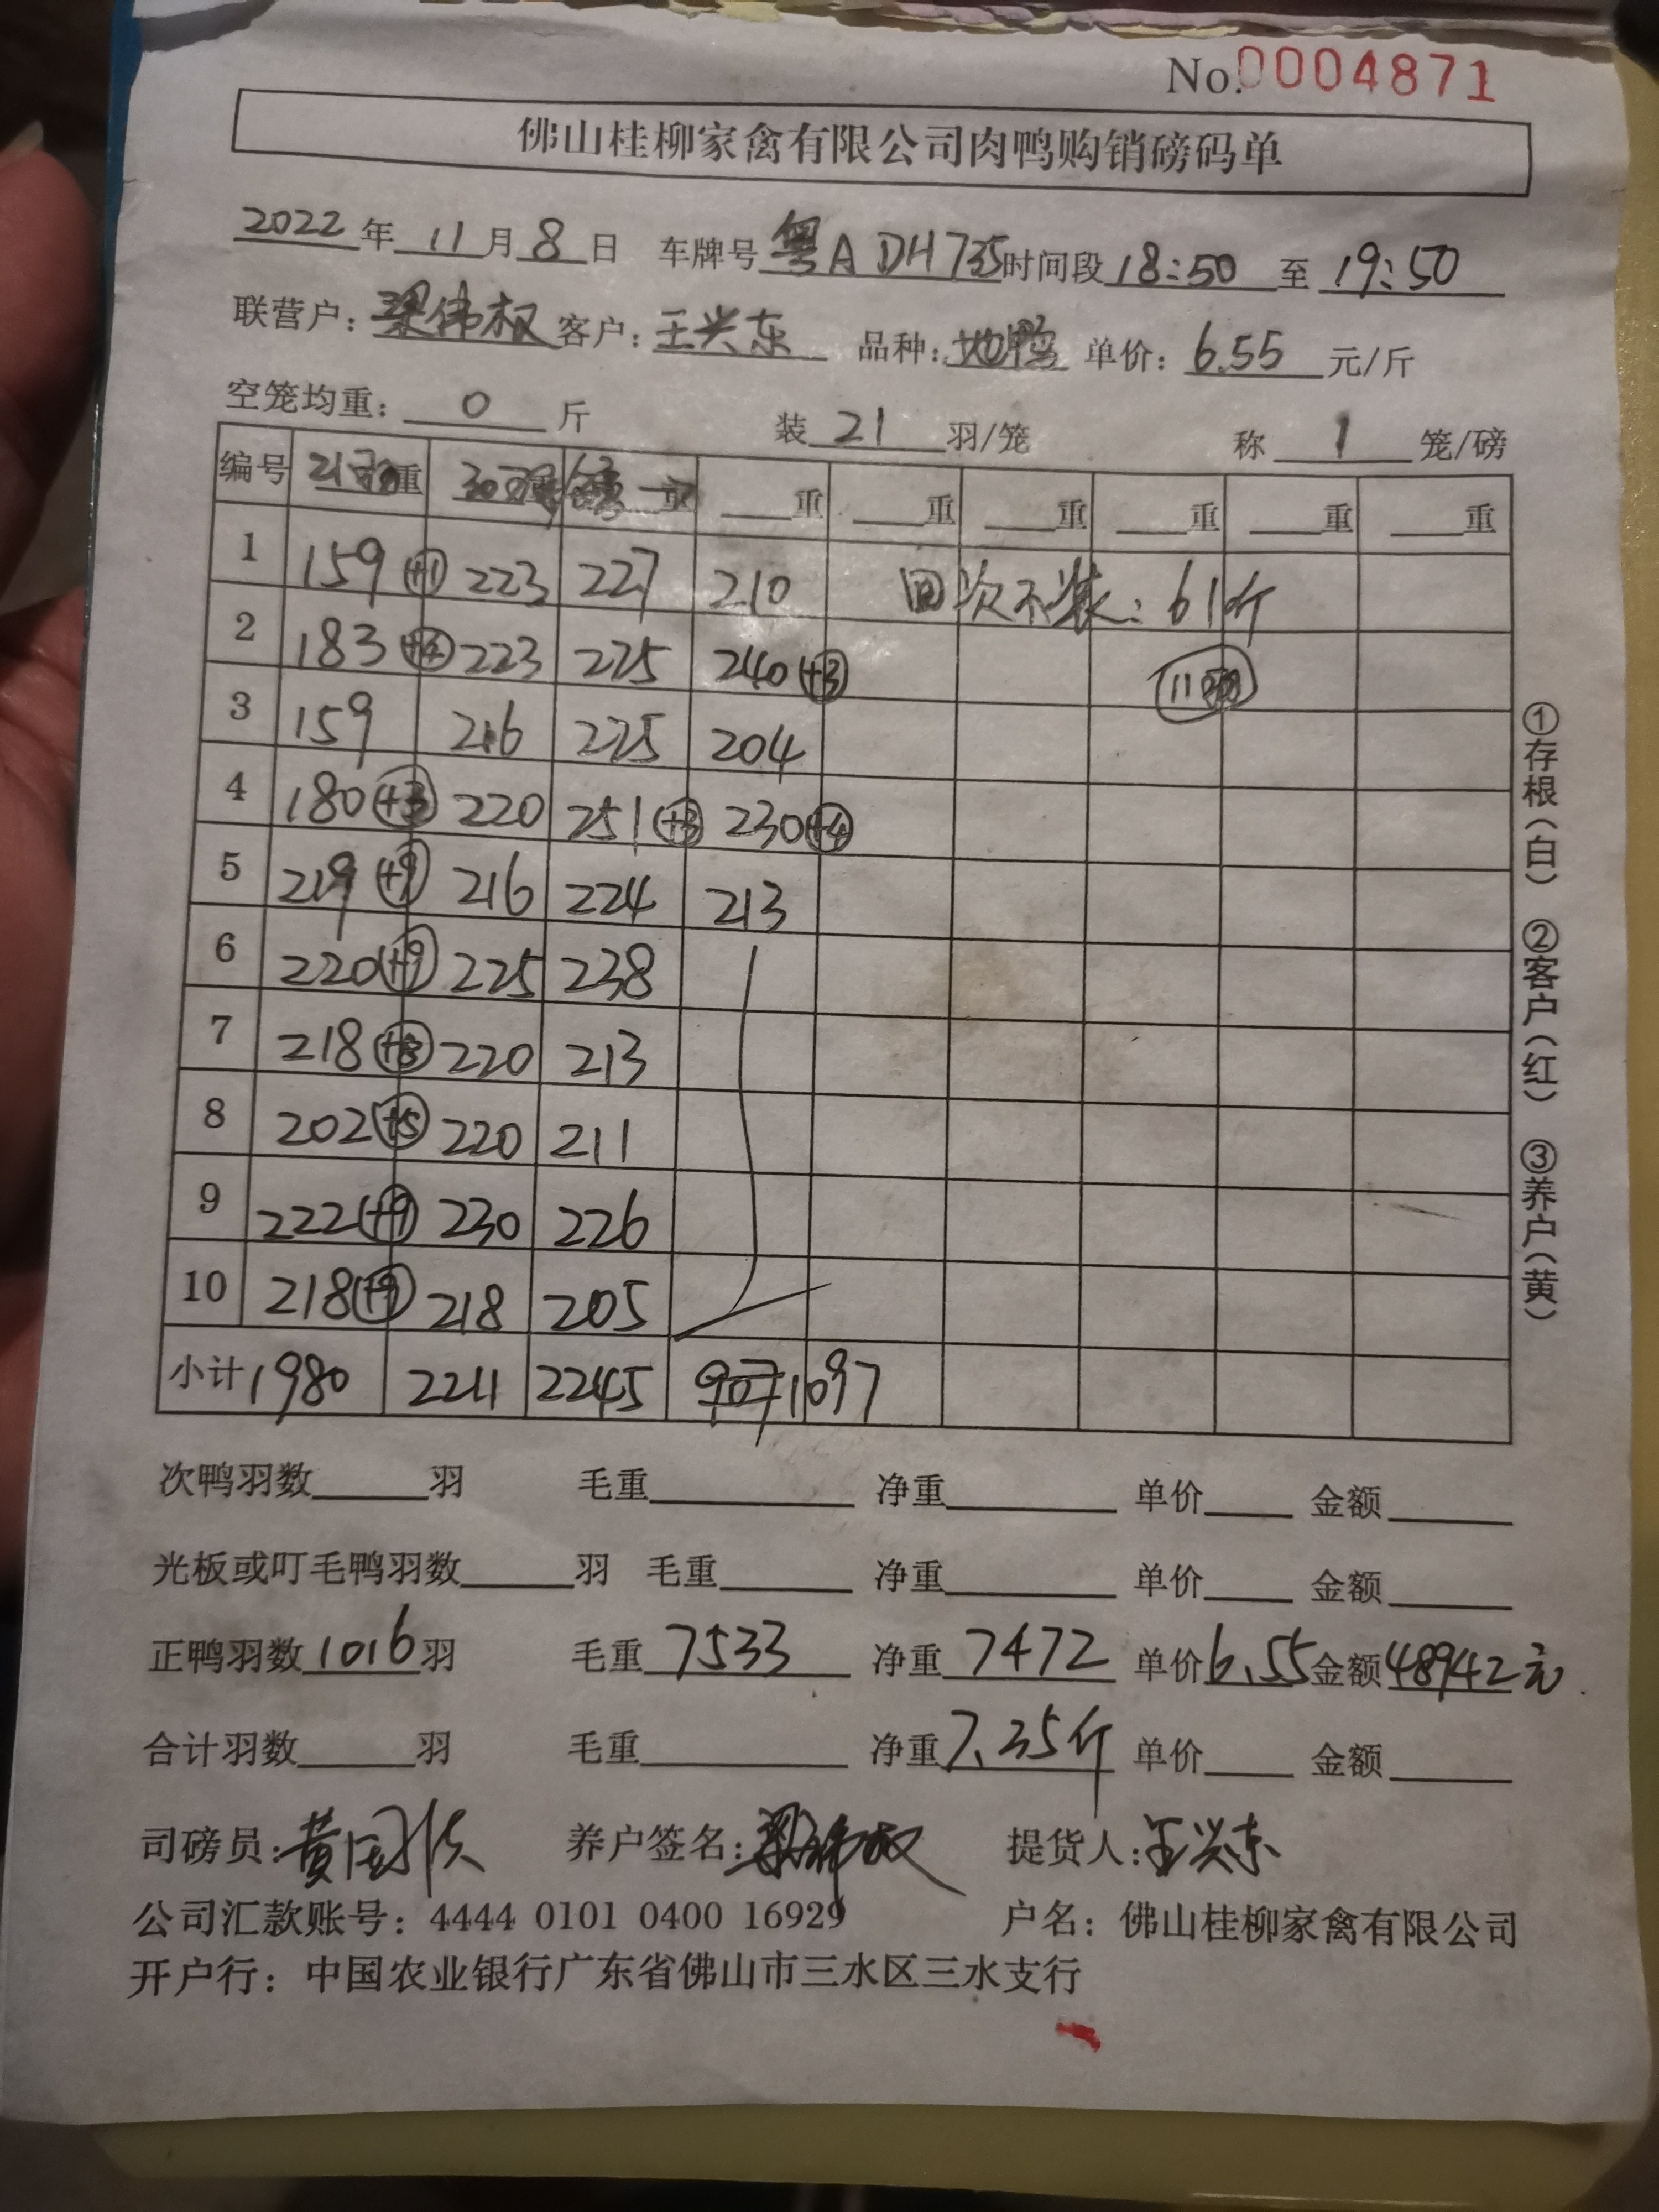 No.0004871
佛山桂柳家禽有限公司肉鸭购销磅码单
2022年11月8日 车牌号粤ADH735时间段18:50至19:50
联营户：梁伟权 客户：王兴东 品种：地鸭 单价：6.55元/斤
空笼均重：0斤 装21羽/笼 称1笼/磅
编号 21 重 30 重 重 重 重 重 重 重
1 159 +1 223 227 210 回次不装：61斤
2 183 +4 223 225 240 +3 11
3 159 216 225 204
4 180 +3 220 251 +3 230 +4
5 219 +9 216 224 213
6 220 +9 225 238
7 218 +8 220 213
8 202 +5 220 211
9 222 +9 230 226
10 218 +9 218 205
小计 1980 2211 2245 907 1097
次鸭羽数 羽 毛重 净重 单价 金额
光板或叮毛鸭羽数 羽 毛重 净重 单价 金额
正鸭羽数1016羽 毛重7533 净重7472 单价6.55 金额48942元
合计羽数 羽 毛重 净重7.35斤 单价 金额
司磅员：黄国 养户签名：梁伟权 提货人：王兴东
公司汇款账号：4444 0101 0400 16929 户名：佛山桂柳家禽有限公司
开户行：中国农业银行广东省佛山市三水区三水支行
①存根（白） ②客户（红） ③养户（黄）